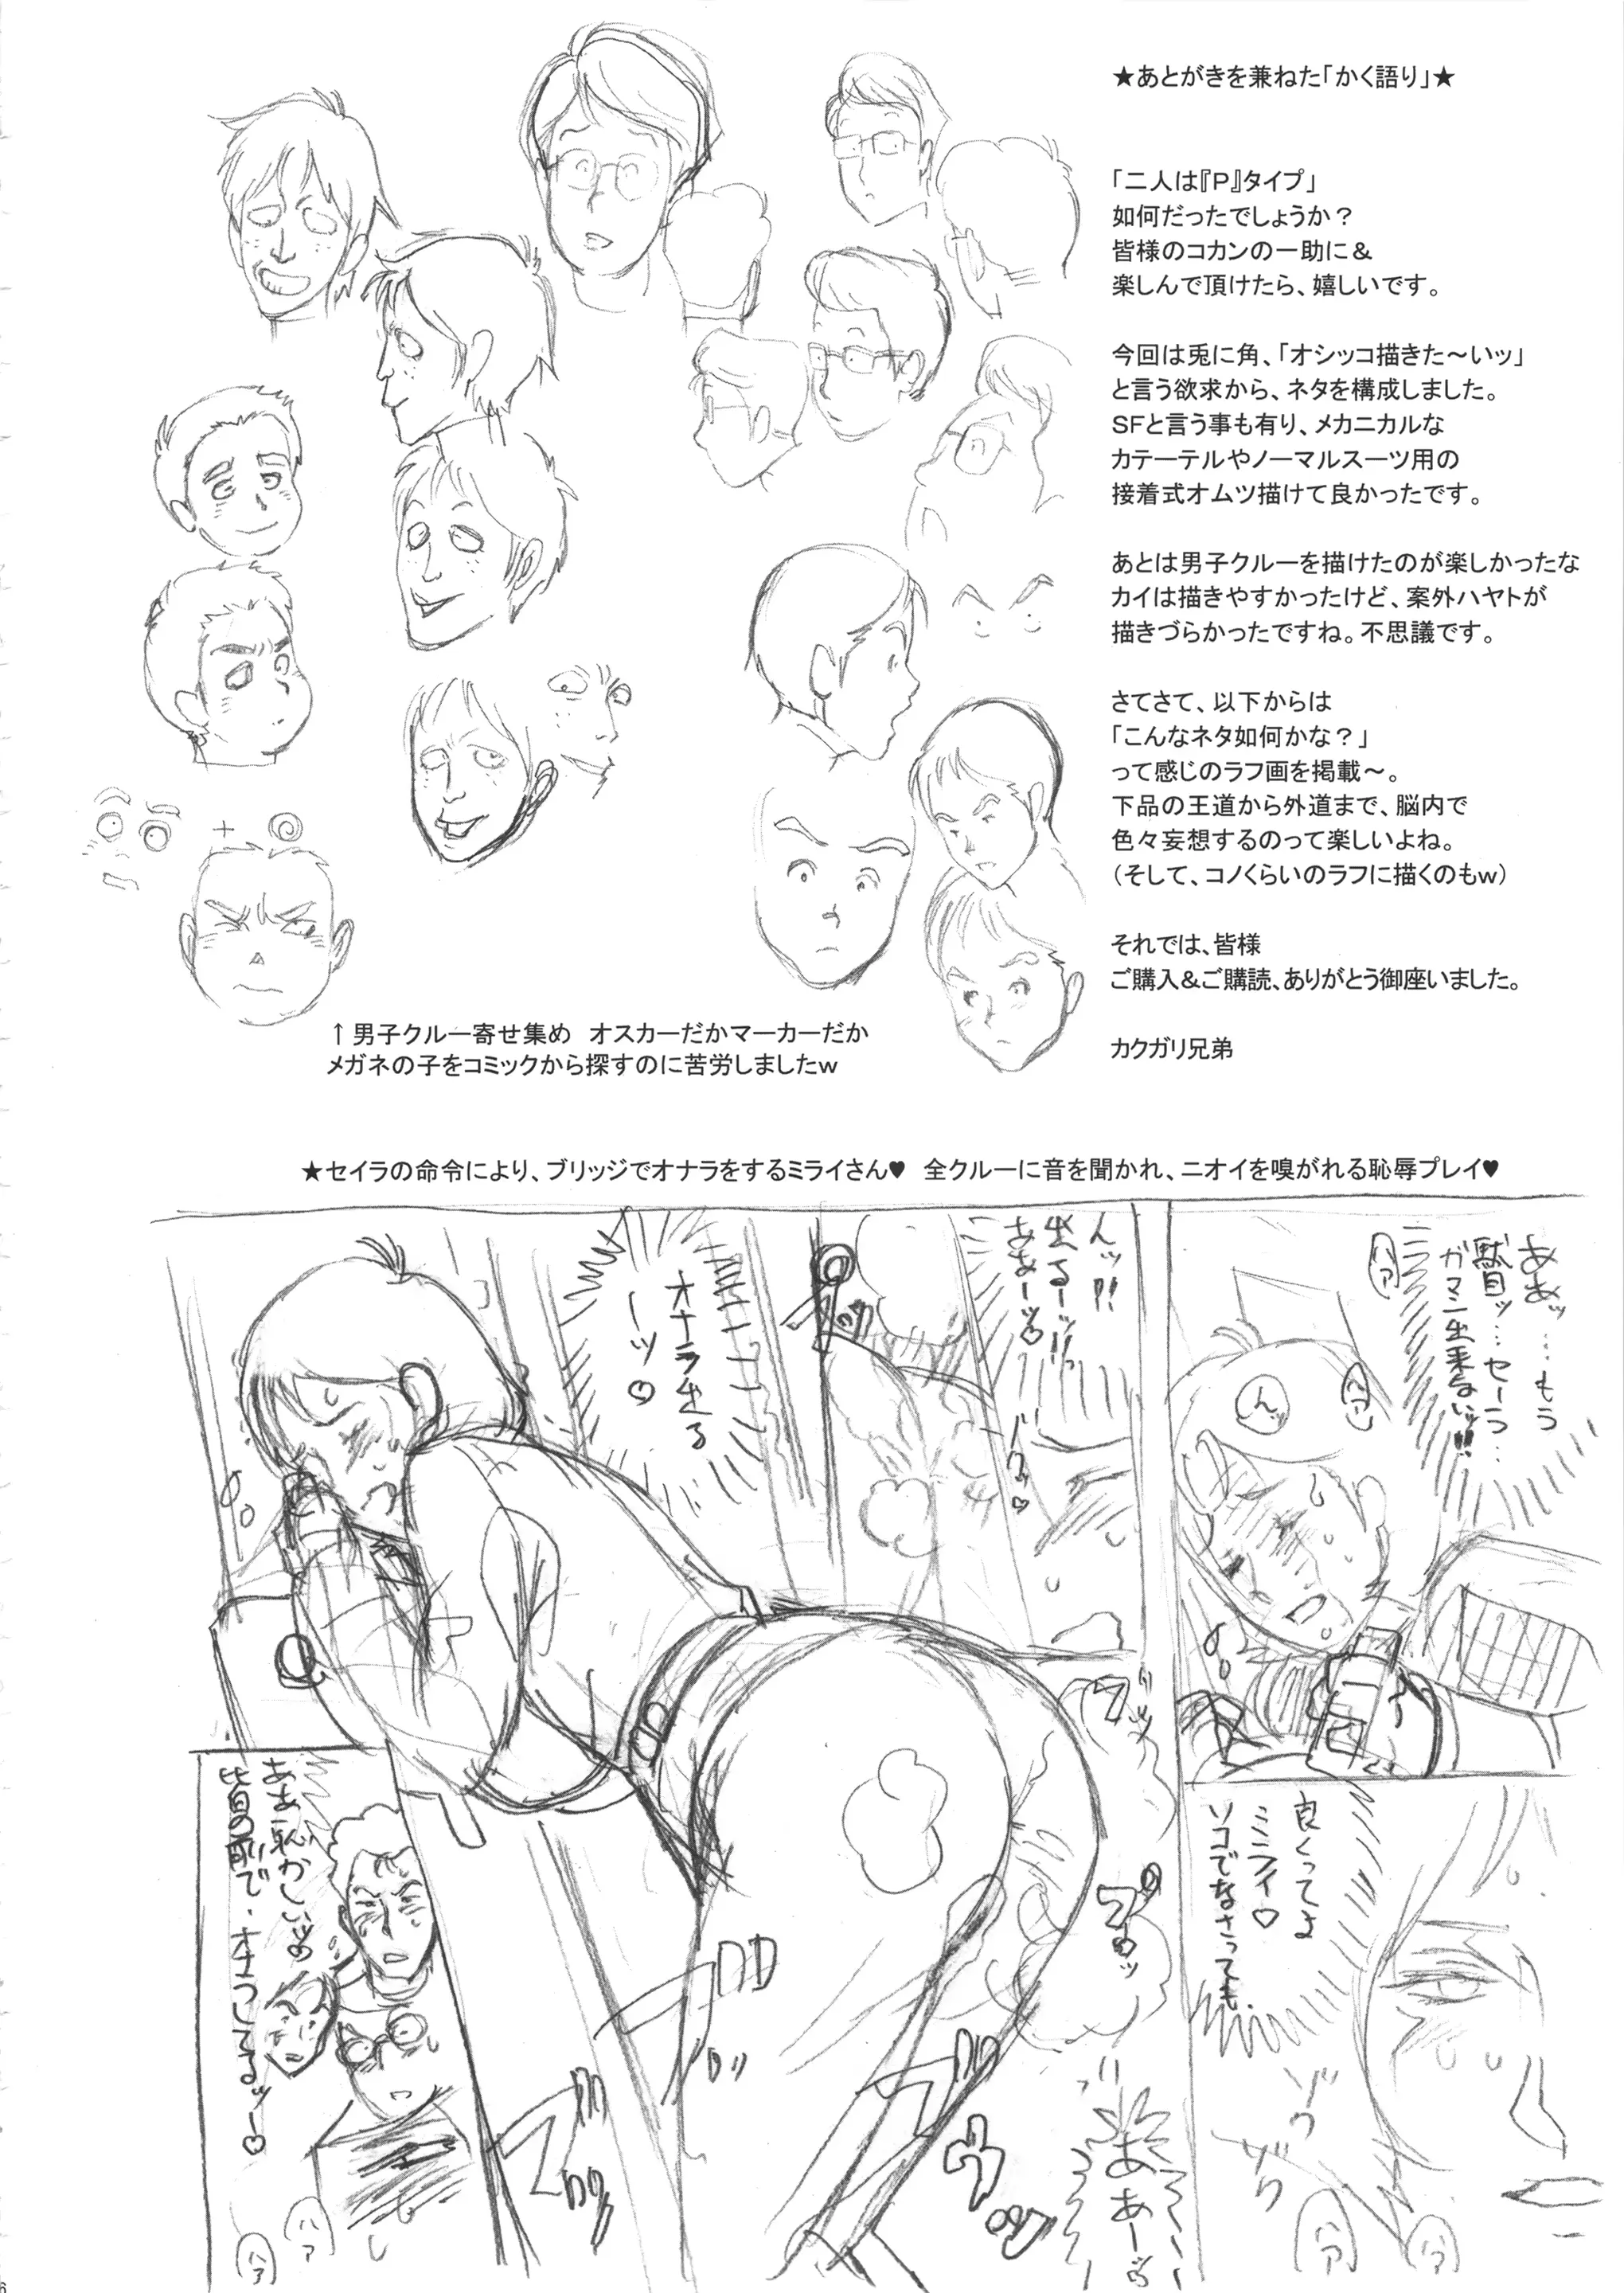 ★あとがきを兼ねた「かく語り」★
「二人は『P』タイプ」
如何だったでしょうか？
皆様のコカンの一助に＆
楽しんで頂けたら、嬉しいです。
今回は兎に角、「オシッコ描きた～いッ」
と言う欲求から、ネタを構成しました。
SFと言う事も有り、メカニカルな
カテーテルやノーマルスーツ用の
接着式オムツ描けて良かったです。
あとは男子クルーを描けたのが楽しかったな
カイは描きやすかったけど、案外ハヤトが
描きづらかったですね。不思議です。
さてさて、以下からは
「こんなネタ如何かな？」
って感じのラフ画を掲載～。
下品の王道から外道まで、脳内で
色々妄想するのって楽しいよね。
（そして、コノくらいのラフに描くのもw）
それでは、皆様
ご購入＆ご購読、ありがとう御座いました。
カクガリ兄弟
↑男子クルー寄せ集め　オスカーだかマーカーだか
メガネの子をコミックから探すのに苦労しましたw
★セイラの命令により、ブリッジでオナラをするミライさん♥　全クルーに音を聞かれ、ニオイを嗅がれる恥辱プレイ♥
ああッ…もう
駄目ッ…セーラ…
ガマン出来ないッ!!
ハァ
んッ
良くってよ
ミライ♡
ソコでなさっても
んッ!!
出るーッ!!
ああーッ♡
オナラ出る
ーッ♡
ああ恥かしいッ
皆の前で・オナラしてるッー♡
ああーッ
ハァ
ハァ
ハァ
ハァ
6